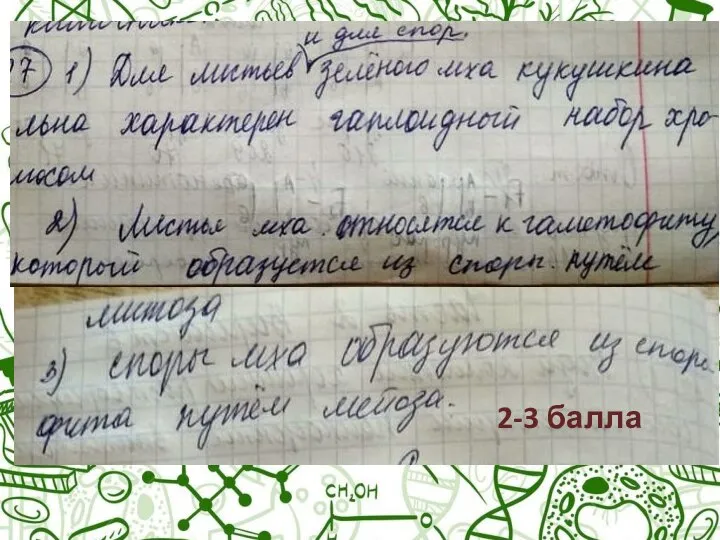 и для спор.
27 1) Для листьев зелёного мха кукушкина
льна характерен гаплоидный набор хро-
мосом
2) Листья мха относятся к гаметофиту,
который образуется из споры путём
митоза
3) споры мха образуются из споро-
фита путём мейоза.
2-3 балла
CH₂OH
O